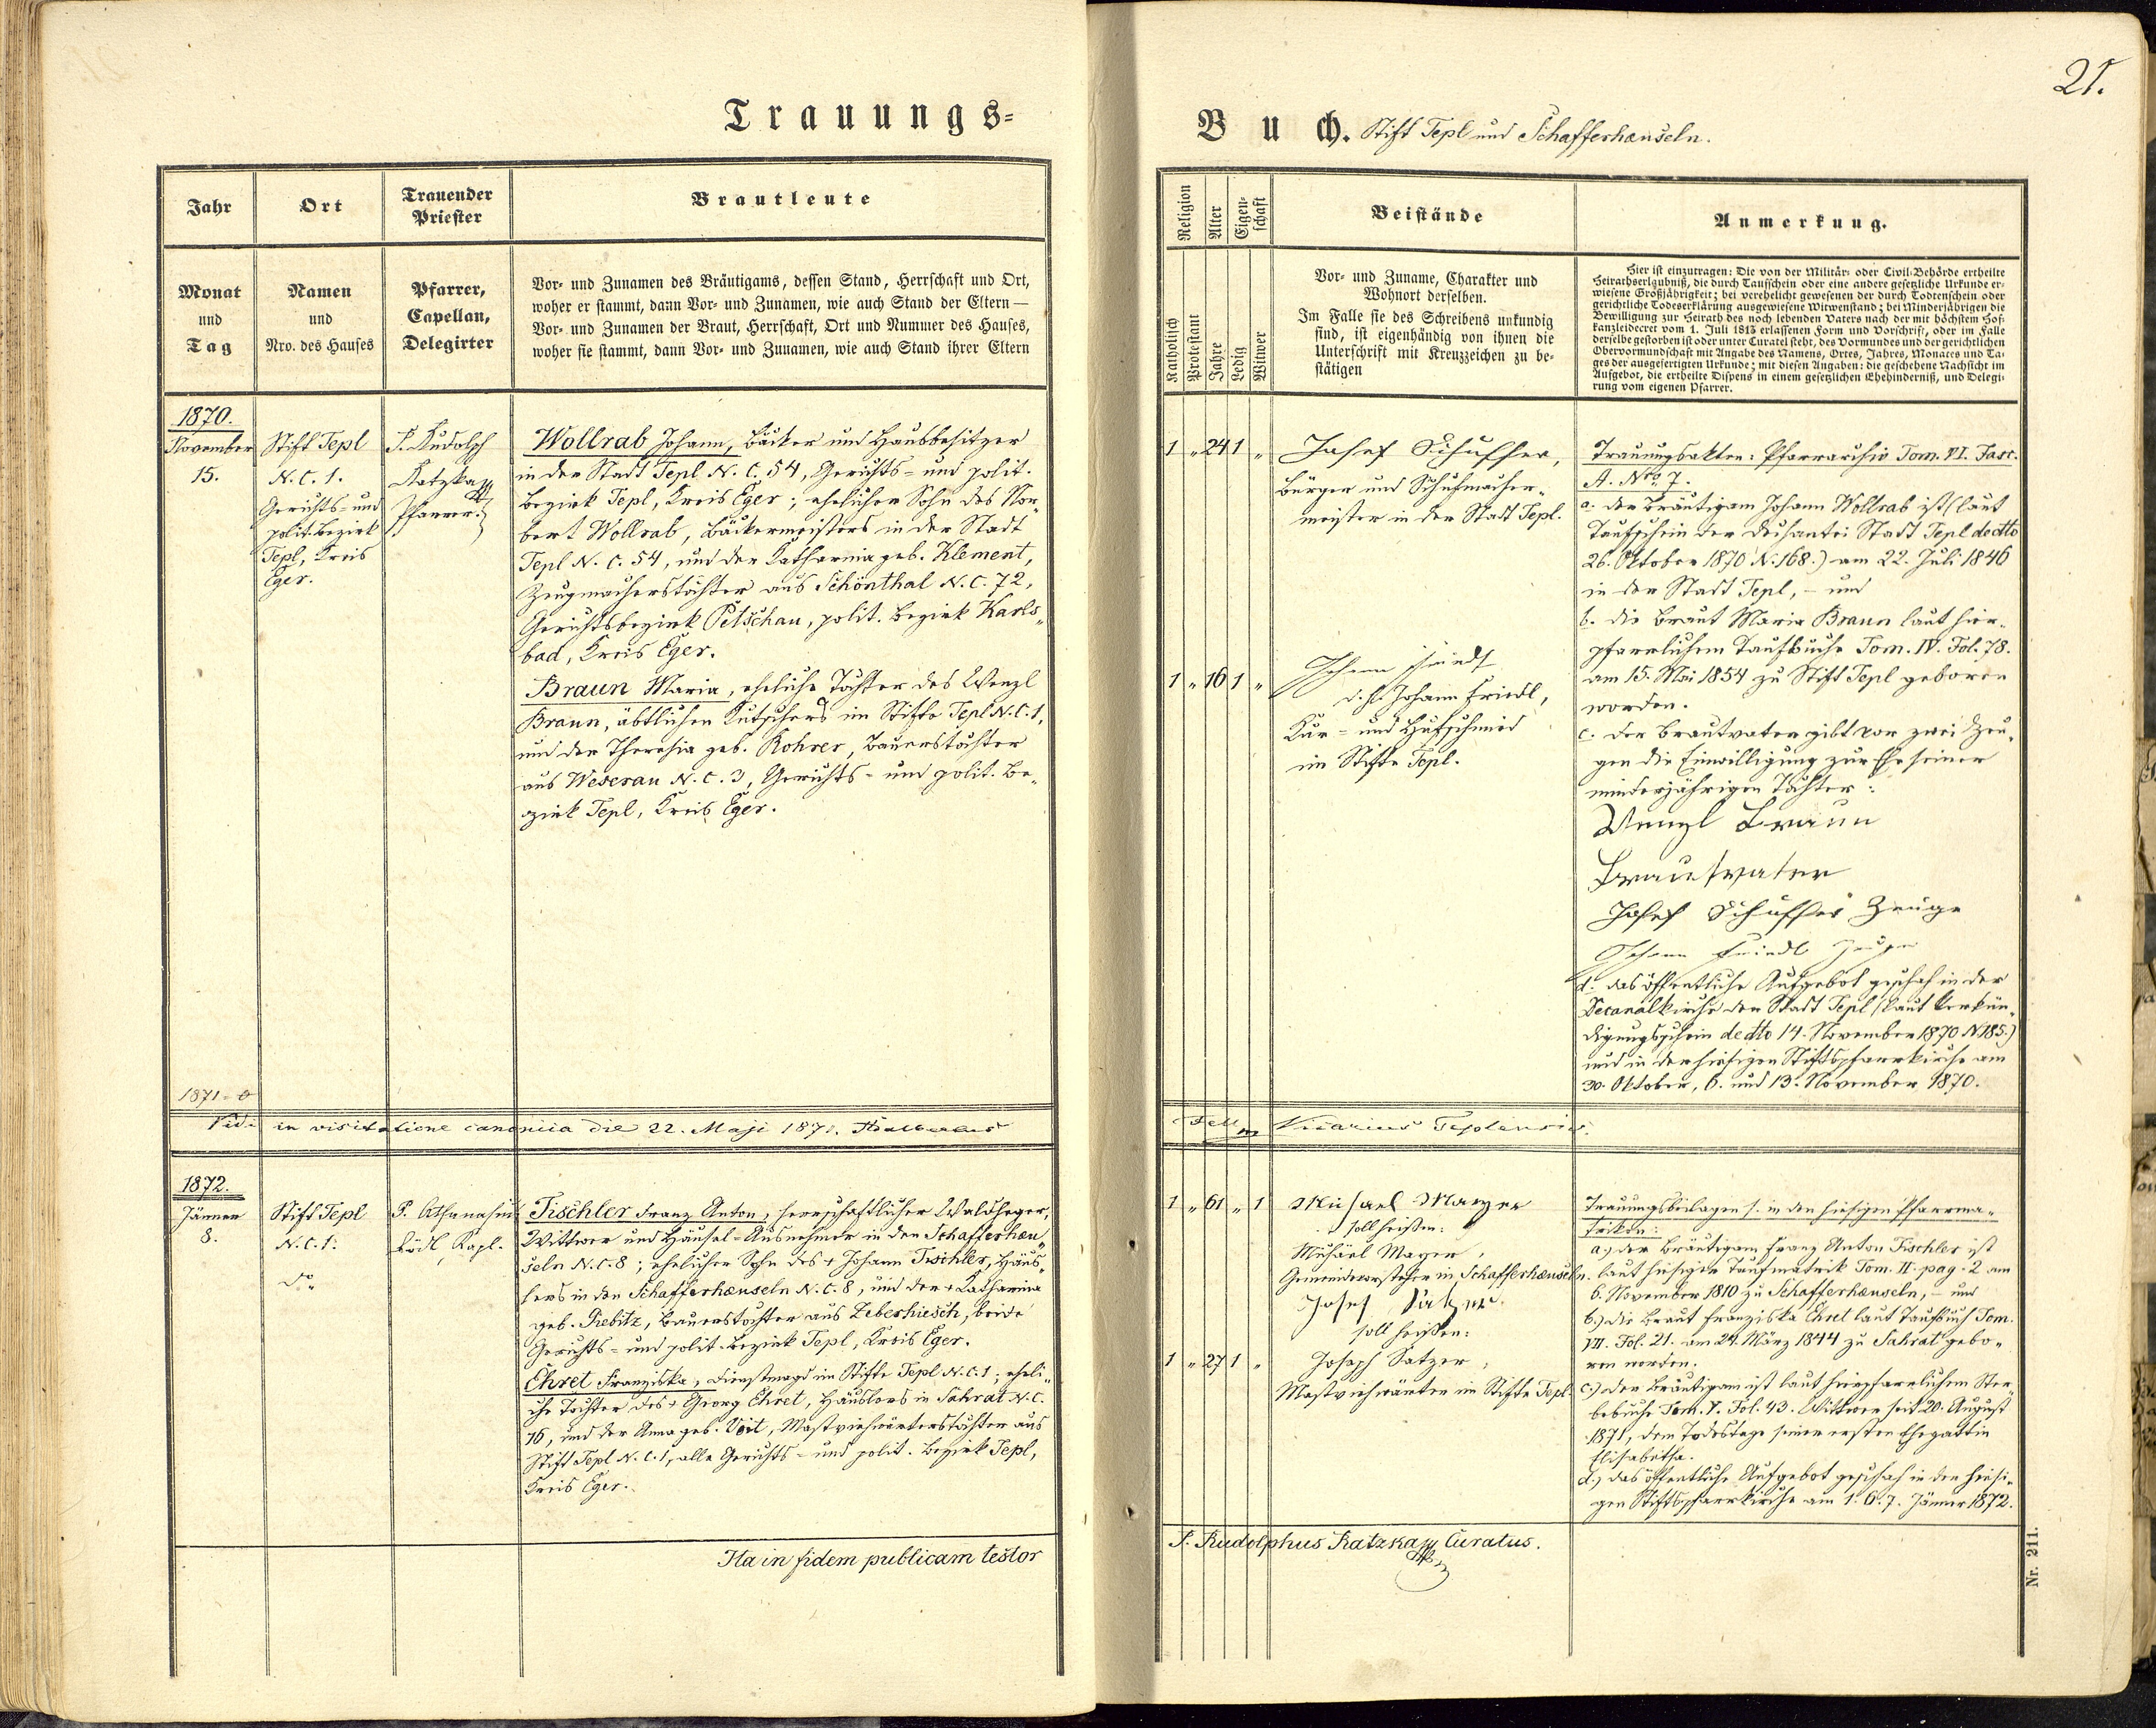 21.
Trauungs-
Buch. Stift Tepl und Schafferhænseln.
Jahr
Ort
Trauender
Priester
Brautleute
Monat
und
Tag
Namen
und
Nro. des Hauses
Pfarrer,
Capellan,
Delegirter
Vor- und Zunamen des Bräutigams, dessen Stand, Herrschaft und Ort,
woher er stammt, dann Vor- und Zunamen, wie auch Stand der Eltern —
Vor- und Zunamen der Braut, Herrschaft, Ort und Nummer des Hauses,
woher sie stammt, dann Vor- und Zunamen, wie auch Stand ihrer Eltern
Religion
Alter
Eigen-
schaft
Beistände
Anmerkung.
Katholisch
Protestant
Jahre
Ledig
Witwer
Vor- und Zuname, Charakter und
Wohnort derselben.
Im Falle sie des Schreibens unkundig
sind, ist eigenhändig von ihnen die
Unterschrift mit Kreuzzeichen zu be-
stätigen
Hier ist einzutragen: Die von der Militär- oder Civil-Behörde ertheilte
Heirathserlaubniß, die durch Taufschein oder eine andere gesetzliche Urkunde er-
wiesene Großjährigkeit; bei verehelicht gewesenen der durch Todtenschein oder
gerichtliche Todeserklärung ausgewiesene Witwenstand; bei Minderjährigen die
Bewilligung zur Heirath des noch lebenden Vaters nach der mit höchstem Hof-
kanzleidecret vom 1. Juli 1813 erlassenen Form und Vorschrift, oder im Falle
derselbe gestorben ist oder unter Curatel steht, des Vormundes und der gerichtlichen
Obervormundschaft mit Angabe des Namens, Ortes, Jahres, Monates und Ta-
ges der ausgefertigten Urkunde; mit diesen Angaben: die geschehene Nachsicht im
Aufgebot, die ertheilte Dispens in einem gesetzlichen Ehehinderniß, und Delegi-
rung vom eigenen Pfarrer.
1870.
November
15.
Stift Tepl
N. C. 1.
Gerichts- und
polit. Bezirk
Tepl, Kreis
Eger.
P. Rudolph
Katzka
Pfarrer.
Wollrab Johann, Bäcker und Hausbesitzer
in der Stadt Tepl N. C. 54, Gerichts- und polit.
Bezirk Tepl, Kreis Eger; ehelicher Sohn des Nor-
bert Wollrab, Bäckermeisters in der Stadt
Tepl N. C. 54, und der Katharina geb. Klement,
Zeugmacherstochter aus Schönthal N. C. 72,
Gerichtsbezirk Petschau, polit. Bezirk Karls-
bad, Kreis Eger.
Braun Maria, eheliche Tochter des Wenzl
Braun, äbtlichen Kutschers im Stifte Tepl N. C. 1,
und der Theresia geb. Rohrer, Bauerstochter
aus Weserau N. C. 3, Gerichts- und polit. Be-
zirk Tepl, Kreis Eger.
1 " 24 1 "
Josef Schuffer,
Bürger und Schuhmacher-
meister in der Stadt Tepl.
1 " 16 1 "
Johann Friedl
d. h. Johann Friedl,
Kur- und Hufschmied
im Stifte Tepl.
Trauungsakten: Pfarrarchiv Tom. VI. Fasc.
A. Nro 7.
a. der Bräutigam Johann Wollrab ist (laut
Taufschein der Dechantei Stadt Tepl dedto
26. Oktober 1870 N. 168.) am 22. Juli 1846
in der Stadt Tepl, – und
b. die Braut Maria Braun laut hier-
pfarrlichem Taufbuche Tom. IV. Fol. 78.
am 15. Mai 1854 zu Stift Tepl geboren
worden.
c. der Brautvater gibt vor zwei Zeu-
gen die Einwilligung zur Ehe seiner
minderjährigen Tochter:
Wenzl Braun
Brautvater
Josef Schuffer Zeuge
Johann Friedl Zeuge
d. das öffentliche Aufgebot geschah in der
Decanalkirche der Stadt Tepl (laut Verkün-
digungsschein dedto 14. November 1870 N 185.)
und in der hiesigen Stiftspfarrkirche am
30. Oktober, 6. und 13. November 1870.
1871. 0
Vidi in visitatione canonica die 22. Maji 1871.
Vicarius Teplensis.
1872.
Jänner
8.
Stift Tepl
N. C. 1.
do
P. Athanasius
Lödl, Kapl.
Tischler Franz Anton, herrschaftlicher Waldheger,
Wittwer und Häusel-Ausnehmer in den Schafferhæn-
seln N. C. 8; ehelicher Sohn des + Johann Tischler, Häus-
lers in den Schafferhænseln N. C. 8, und der + Katharina
geb. Rebitz, Bauerstochter aus Zeberhiesch, beide
Gerichts- und polit. Bezirk Tepl, Kreis Eger.
Ehret Franziska, Dienstmagd im Stifte Tepl N. C. 1; eheli-
che Tochter des + Georg Ehret, Häuslers in Sahrat N. C.
16, und der Anna geb. Veit, Mastviehwärterstochter aus
Stift Tepl N. C. 1, alle Gerichts- und polit. Bezirk Tepl,
Kreis Eger.
1 " 61 " 1
Michael Mayer
soll heißen:
Michael Mayer,
Gemeindevorsteher in Schafferhænseln.
Josef Satzer.
soll heißen:
1 " 27 1 "
Joseph Satzer,
Mastviehwärter im Stifte Tepl.
Trauungsbeilagen s. in der hiesigen Pfarrma-
triken:
a.) der Bräutigam Franz Anton Tischler ist
laut hiesiger Taufmatrik Tom. II. pag. 2 am
6. November 1810 zu Schafferhænseln, – und
b.) die Braut Franziska Ehret laut Taufbuch Tom.
VII. Fol. 21. am 24. März 1844 zu Sahrat gebo-
ren worden.
c.) der Bräutigam ist laut hierpfarrlichem Ster-
bebuche Tom. V. Fol. 43. Wittwer seit 20. August
1871, dem Todestage seiner ersten Ehegattin
Elisabetha.
d.) das öffentliche Aufgebot geschah in der hiesi-
gen Stiftspfarrkirche am 1. 6. 7. Jänner 1872.
Ita in fidem publicam testor
P. Rudolphus Katzka Curatus.
Nr. 211.